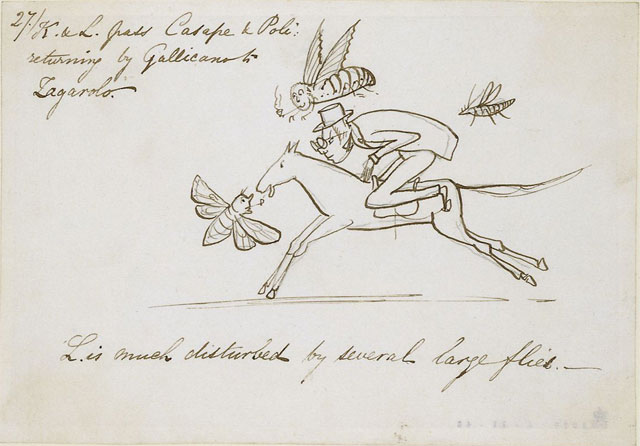 27./ K. & L. pass Casape & Poli:
returning by Gallicano to
Zagarolo.
L. is much disturbed by several large flies. —